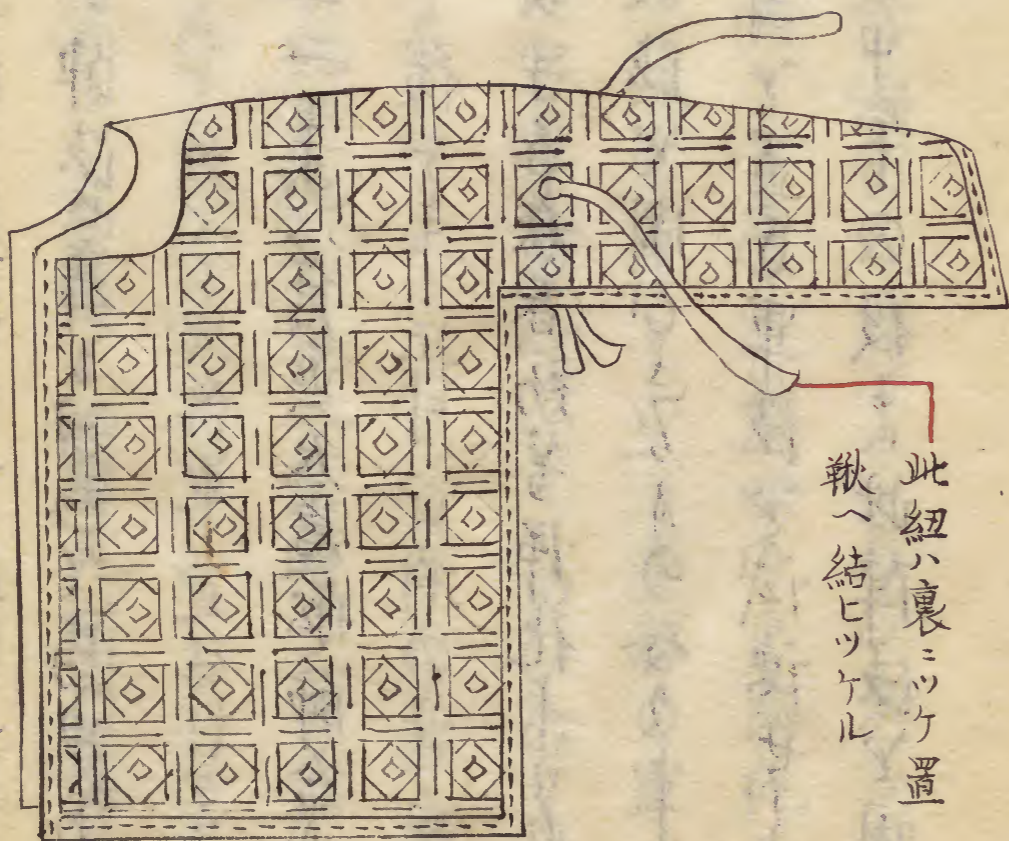 此紐ハ裏ニツケ置
鞦ヘ結ヒツケル